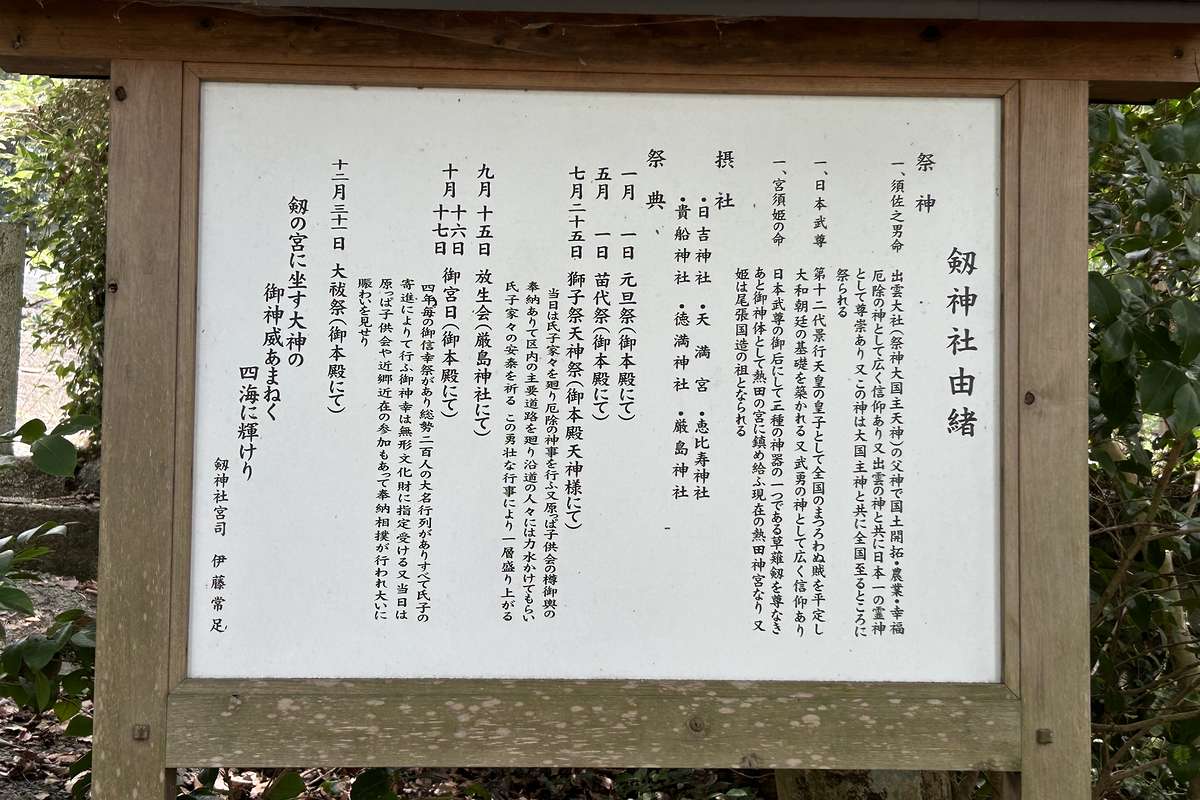 剱神社由緒
祭神
一、須佐之男命 出雲大社(祭神大国主天神)の父神で国土開拓・農業・幸福
厄除の神として広く信仰あり又出雲の神と共に日本一の霊神
として尊崇あり又この神は大国主神と共に全国至るところに
祭られる
一、日本武尊 第十二代景行天皇の皇子として全国のまつろわぬ賊を平定し
大和朝廷の基礎を築かれる又武勇の神として広く信仰あり
一、宮須姫の命 日本武尊の御后にして三種の神器の一つである草薙剱を尊なき
あと御神体として熱田の宮に鎮め給ふ現在の熱田神宮なり又
姫は尾張国造の祖となられる
摂社
・日吉神社 ・天満宮 ・恵比寿神社
・貴船神社 ・徳満神社 ・厳島神社
祭典
一月 一日 元旦祭(御本殿にて)
五月 一日 苗代祭(御本殿にて)
七月二十五日 獅子祭天神祭(御本殿天神様にて)
当日は氏子家々を廻り厄除の神事を行ふ又原っぱ子供会の樽御輿の
奉納ありて区内の主要道路を廻り沿道の人々には力水かけてもらい
氏子家々の安泰を祈る この勇壮な行事により一層盛り上がる
九月 十五日 放生会(厳島神社にて)
十月 十六日
十七日 御宮日(御本殿にて)
四年毎の御信幸祭があり総勢二百人の大名行列がありすべて氏子の
寄進によりて行ふ御神幸は無形文化財に指定受ける又当日は
原っぱ子供会や近郷近在の参加もあって奉納相撲が行われ大いに
賑わいを見せり
十二月三十一日 大祓祭(御本殿にて)
剱の宮に坐す大神の
御神威あまねく
四海に輝けり
剱神社宮司 伊藤常足